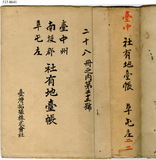 臺中
社有地臺帳
草屯庄 二二
二十八冊之內第號
臺中州
南投郡 社有地臺帳
草屯庄
臺灣株式會社